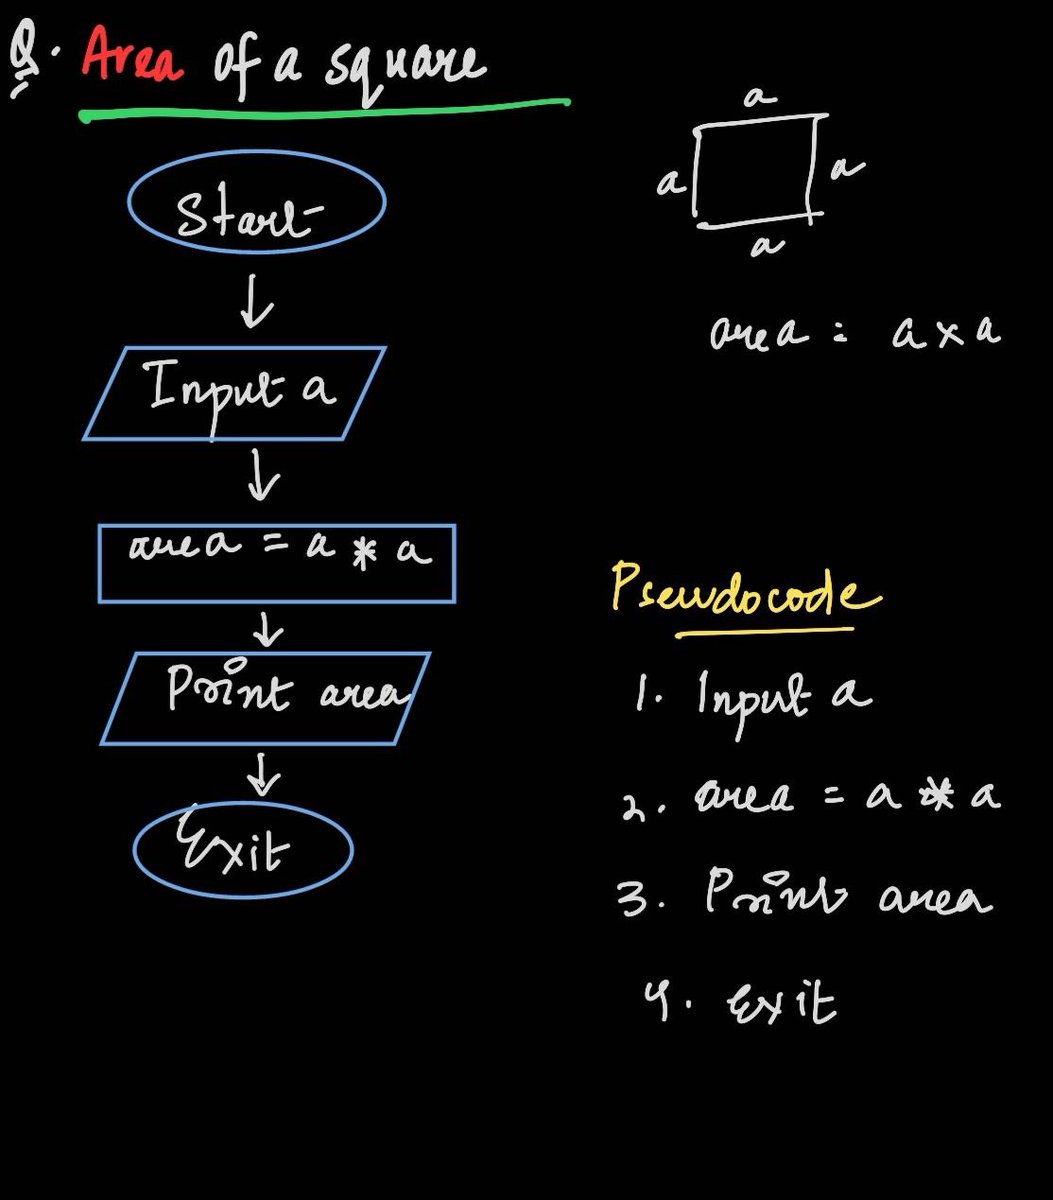 Q. Area of a square
Start
Input a
area = a * a
Print area
Exit
a
a
a
a
area = a × a
Pseudocode
1. Input a
2. area = a * a
3. Print area
4. Exit